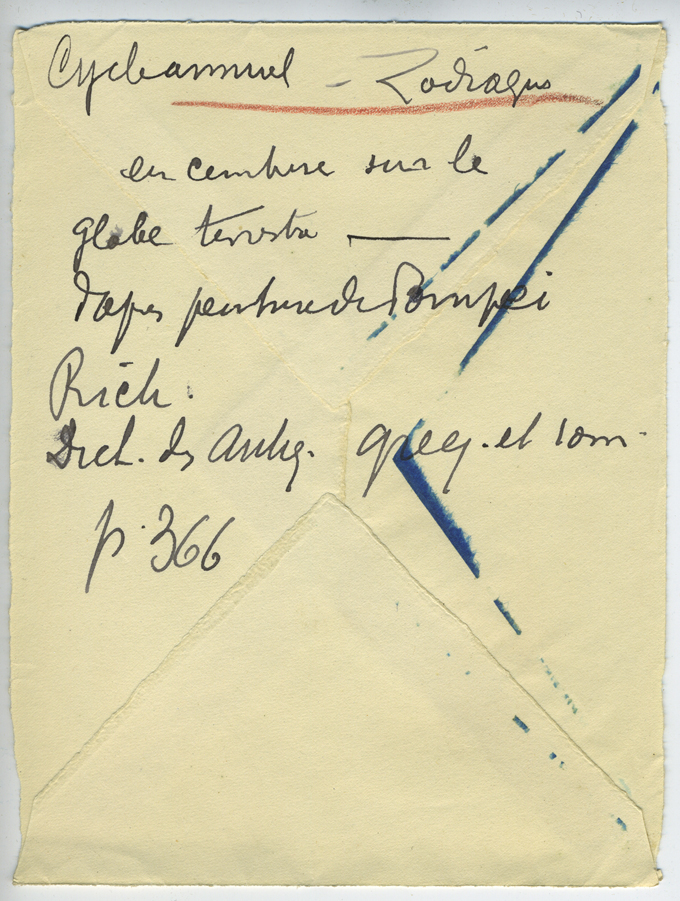 Cycle annuel - Zodiaque
en ceinture sur le
globe terrestre —
d'après peinture de Pompéi
Rich.
Dict. des Antiq. grecq. et rom.
p. 366